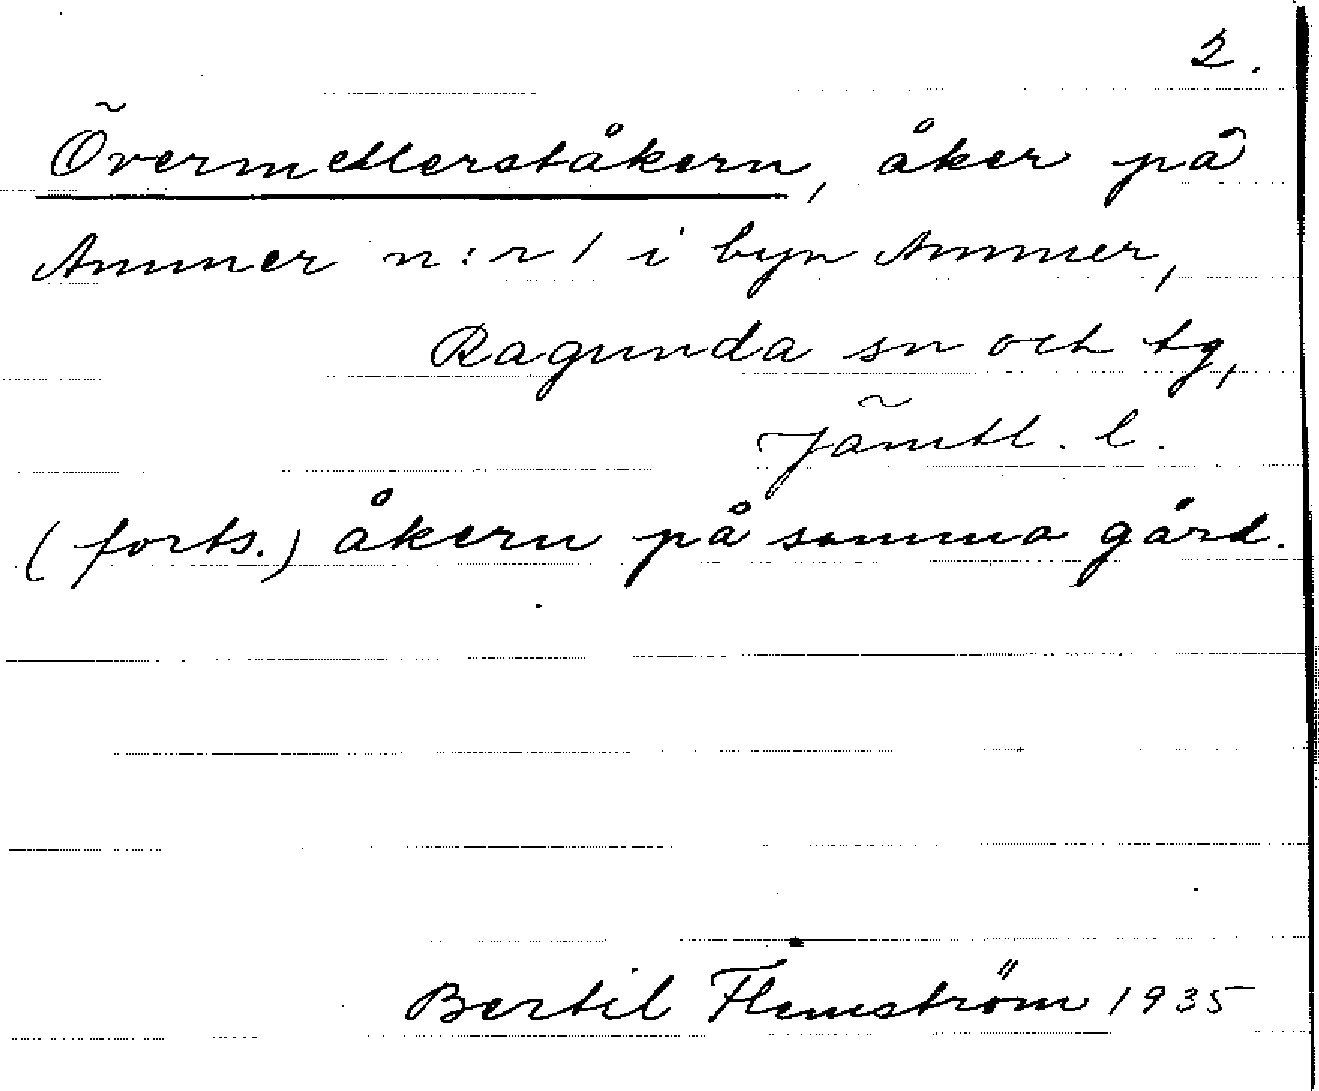 2.
Övermellerståkern, åker på
Ammer n:r 1 i byn Ammer,
Ragunda sn och tg,
Jämtl. l.
(forts.) åkern på samma gård.
Bertil Flemström 1935